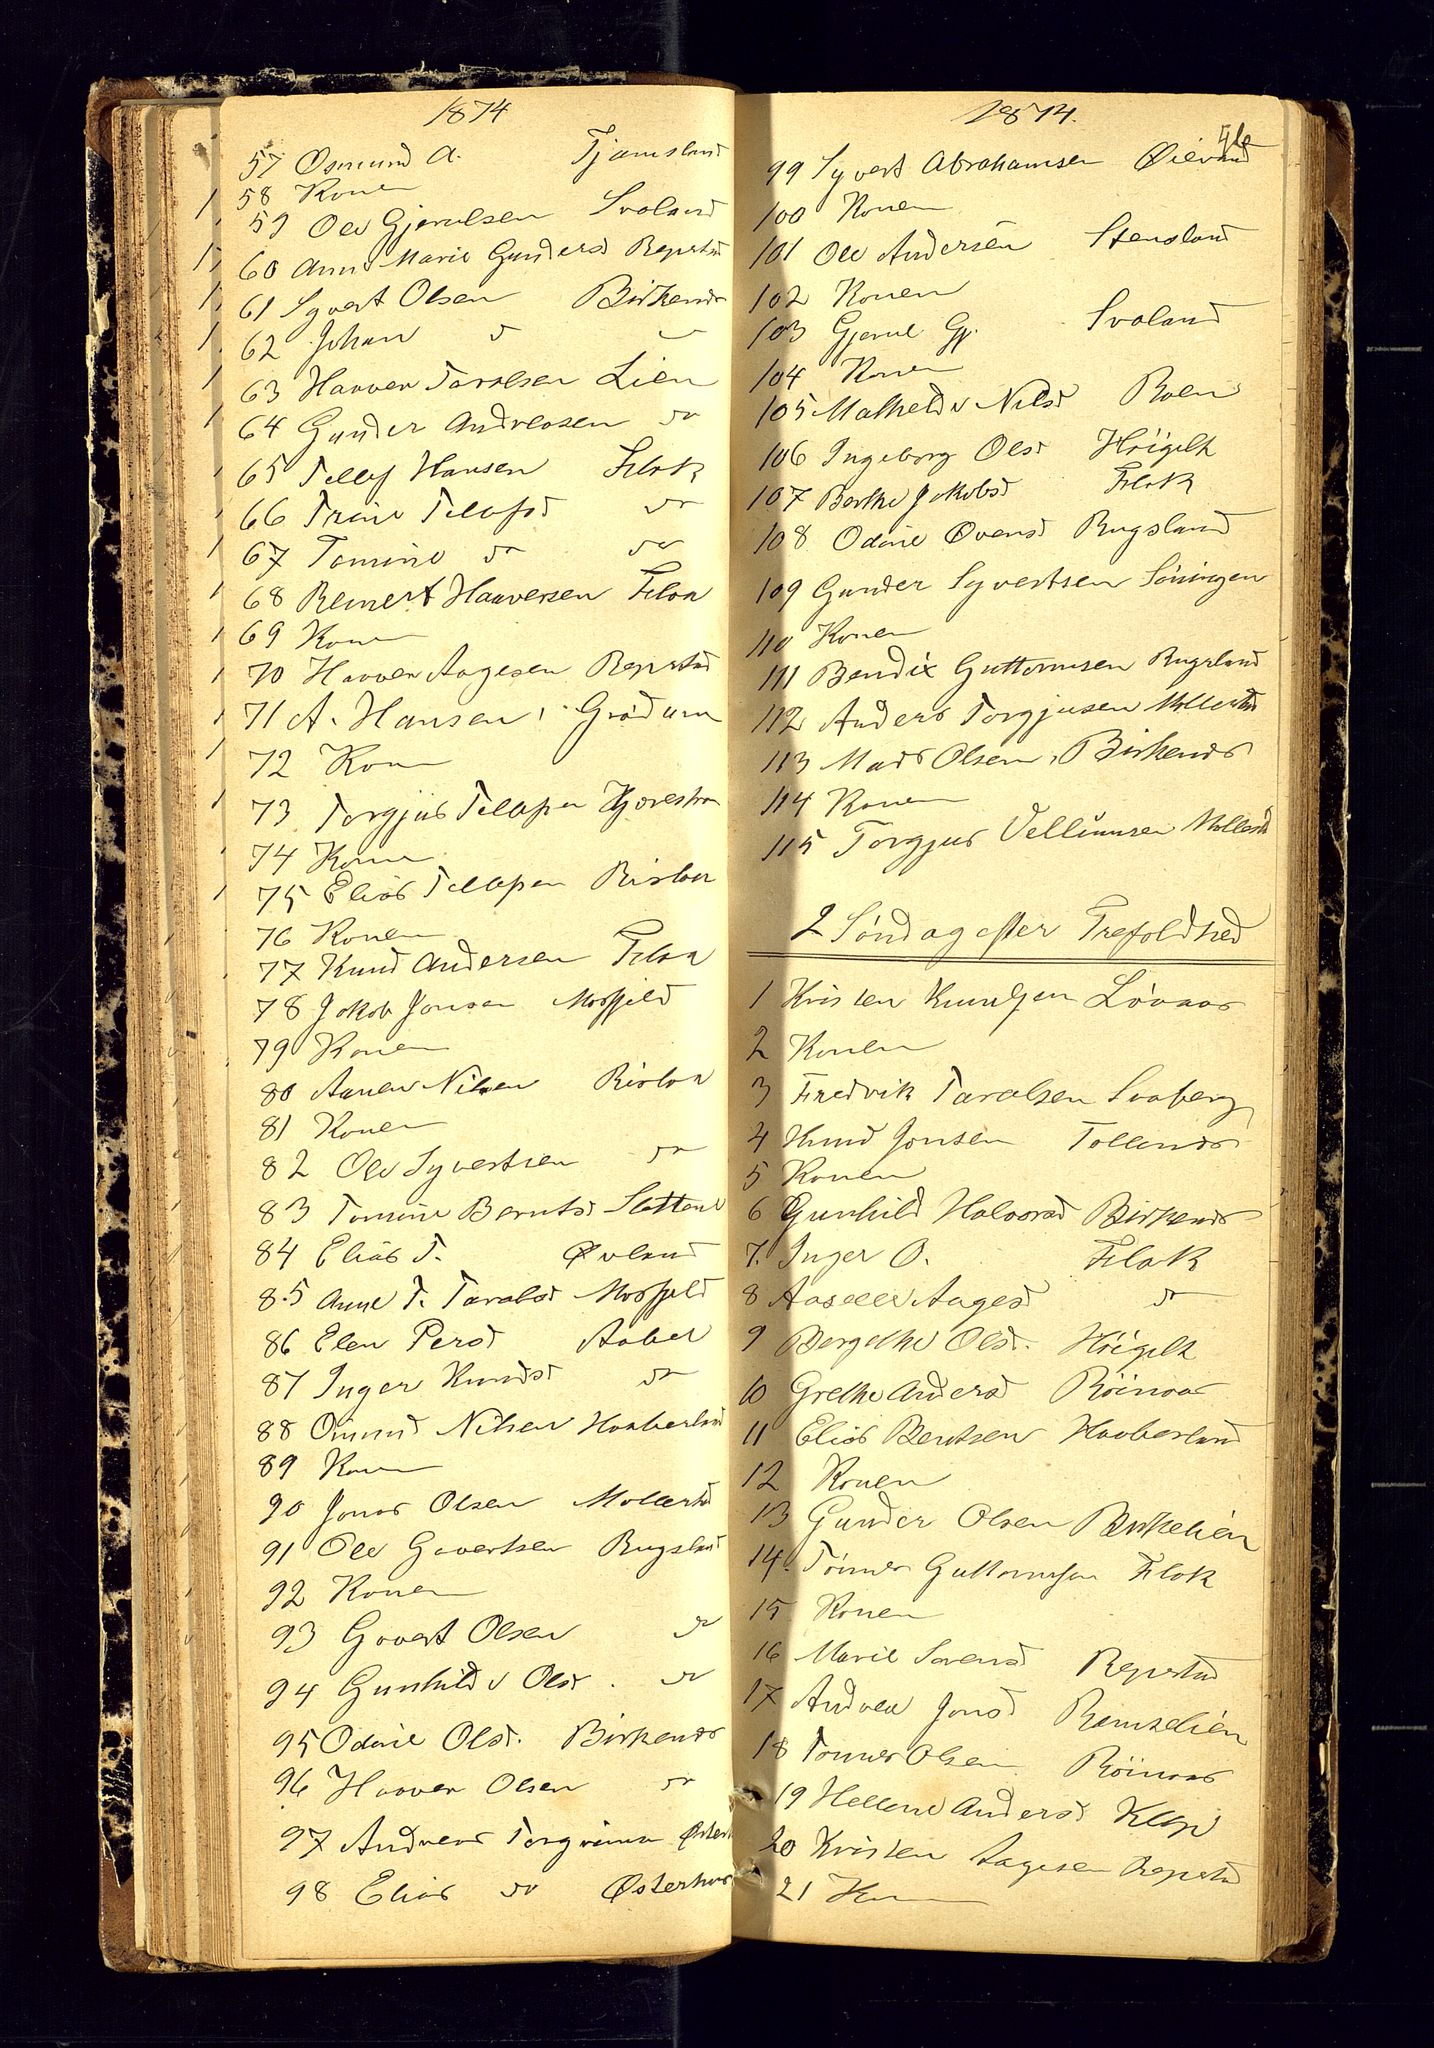 1874
57 Osmund A. Tjamsland
58 Konen
59 Ole Gjerulsen Svaland
60 Anne Marie Gundersd Repstad
61 Syvert Olsen Birkenes
62 Johan do do
63 Haaver Taralsen Lien
64 Gunder Andreasen do
65 Tellef Hansen Flak
66 Trine Tellefsd do
67 Tomine do do
68 Reinert Haaversen Flaa
69 Konen
70 Haaver Aagesen Repstad
71 A. Hansen, Grødum
72 Kone
73 Torgjus Tellefsen
74 Kone
75 Elias Tellefsen Risløa
76 Konen
77 Knud Andersen Flaa
78 Jakob Jonsen Mosfjeld
79 Konen
80 Aanen Nilsen Risløa
81 Konen
82 Ole Syvertsen do
83 Tomine Berntsd Slettene
84 Elias T. Øvland
85 Anne T. Taralsd Mosfjeld
86 Elen Persd Aabel
87 Inger Knudsd do
88 Osmund Nilsen Haaberland
89 Kone
90 Jonas Olsen Mollestad
91 Ole Govertsen Rugsland
92 Konen
93 Govert Olsen do
94 Gunhilde Olsd. do
95 Odine Olsd. Birkenes
96 Haaver Olsen do
97 Andreas Torgrimsen
98 Elias do Østerhus
1874.
99 Syvert Abrahamsen Øievand
100 Konen
101 Ole Andersen Stensland
102 Konen
103 Gjerul Gj. Svaland
104 Konen
105 Mathelde Nilsd Roen
106 Ingeborg Olsd Høigelt
107 Berthe Jakobsd Flak
108 Odine Øvensd Rugsland
109 Gunder Syvertsen Søningen
110 Konen
111 Bendix Guttormsen Rugsland
112 Anders Torgjusen Mollestad
113 Mads Olsen, Birkenes
114 Konen
115 Torgjus Vellumsen Mollestad
2 Søndag efter Trefoldhed
1 Kristen Knudsen Løvaas
2 Konen
3 Fredrik Taralsen Svaberg
4 Knud Jonsen Tollenes
5 Konen
6 Gunhild Halvorsd Birkenes
7. Inger O. Flak
8 Aaselle Aagesd do
9 Bergethe Olsd. Høigelt
10 Grethe Andersd Røinaas
11 Elias Bentsen Haaberland
12 Konen
13 Gunder Olsen Birkelien
14. Tønnes Guttormsen Flak
15 Konen
16 Marie Sørensd Repstad
17 Andrea Jonsd Ramselien
18 Tønnes Olsen Røinaas
19 Hellene Andersd Klepi
20 Kristen Aagesen Repstad
21 Kone